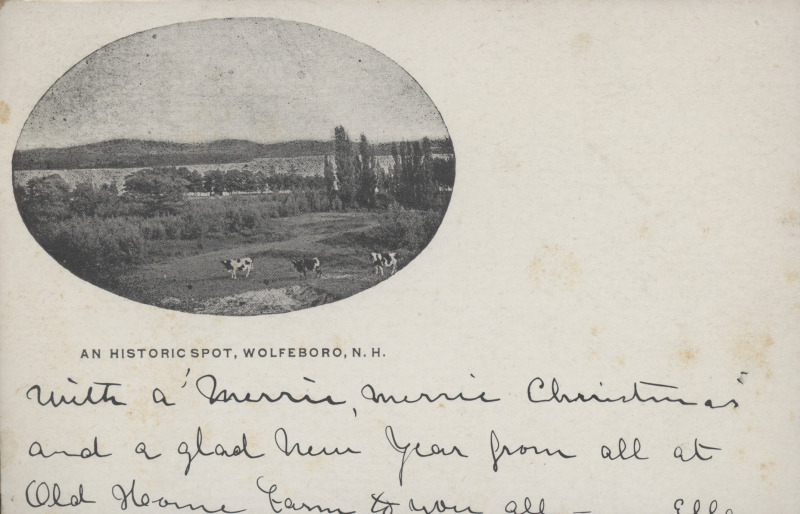 AN HISTORIC SPOT, WOLFEBORO, N. H.
With a "Merrie, merrie Christmas"
and a glad New Year from all at
Old Home Farm to you all – Ella